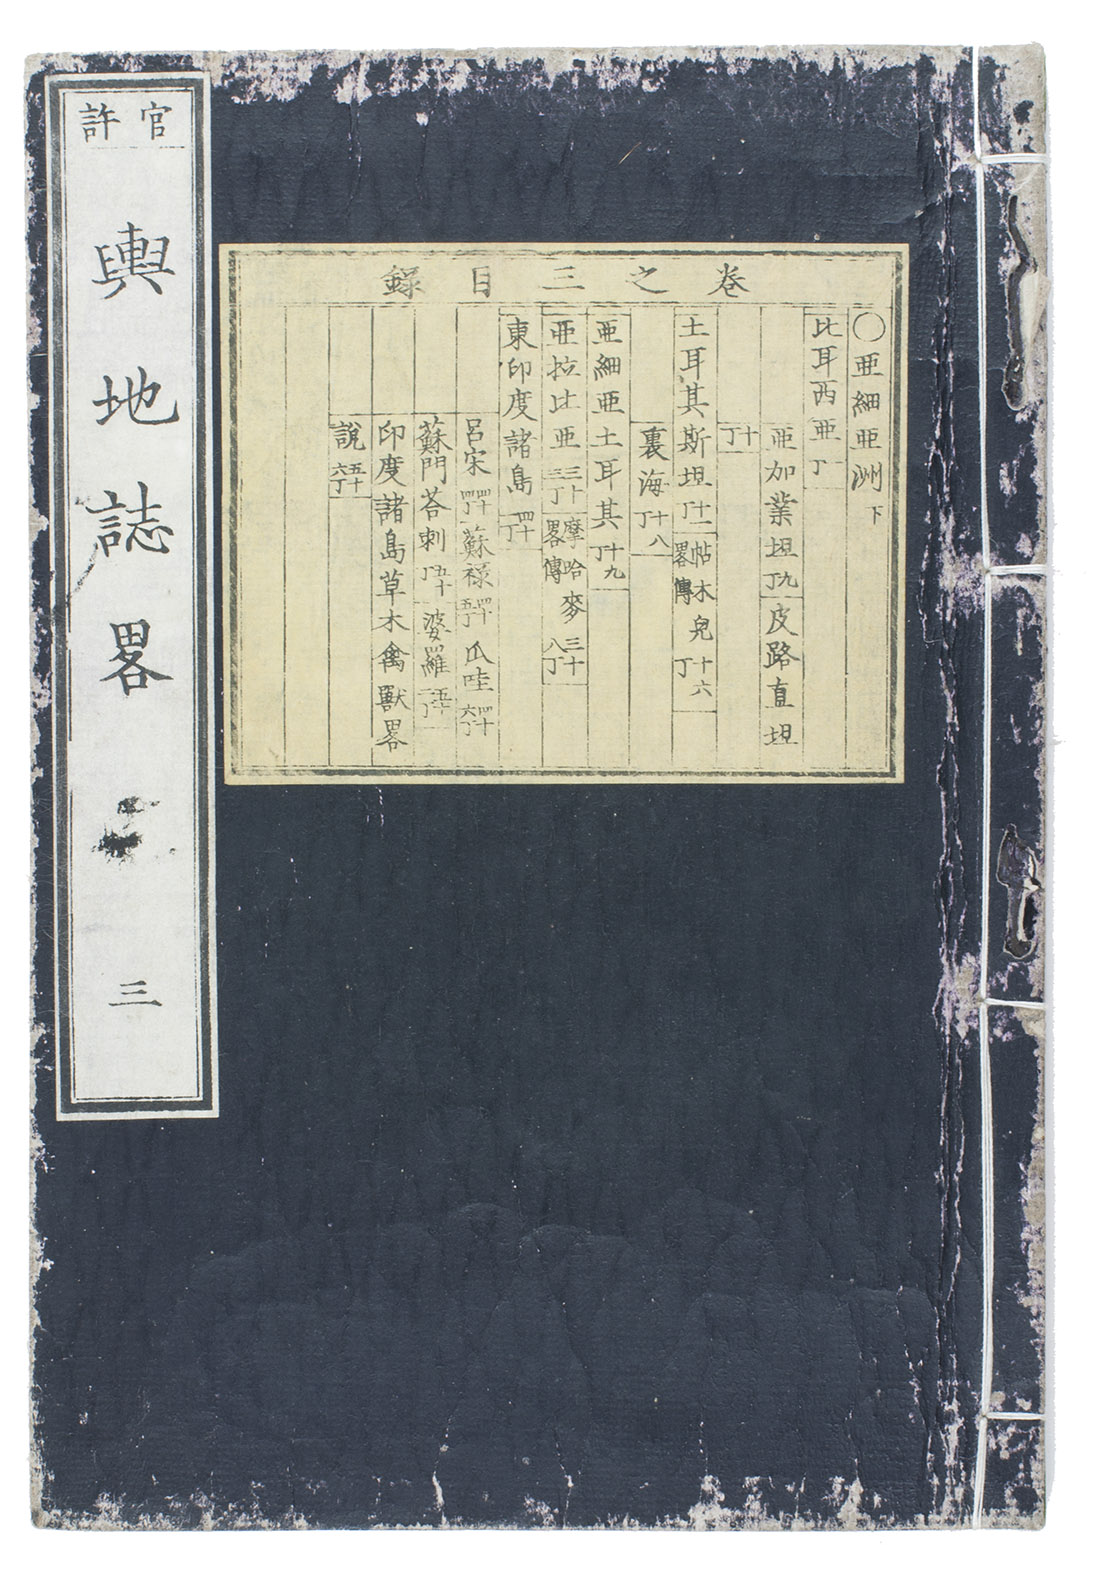 官許
輿地誌畧 三
卷之三目錄
○亜細亜洲下
比耳西亜 一丁
亜加業坦 九丁 皮路直坦
十丁
土耳其斯坦 十二丁 帖木兒畧傳 十六丁
裏海 十八丁
亜細亜土耳其 十九丁
亜拉比亜 三十三丁 摩哈麥畧傳 三十八丁
東印度諸島 四十丁
呂宋 四十四丁 蘇祿 四十五丁 瓜哇 四十六丁
蘇門荅剌 五十丁 婆羅 五十一丁
印度諸島草木禽獸畧
說 五十六丁